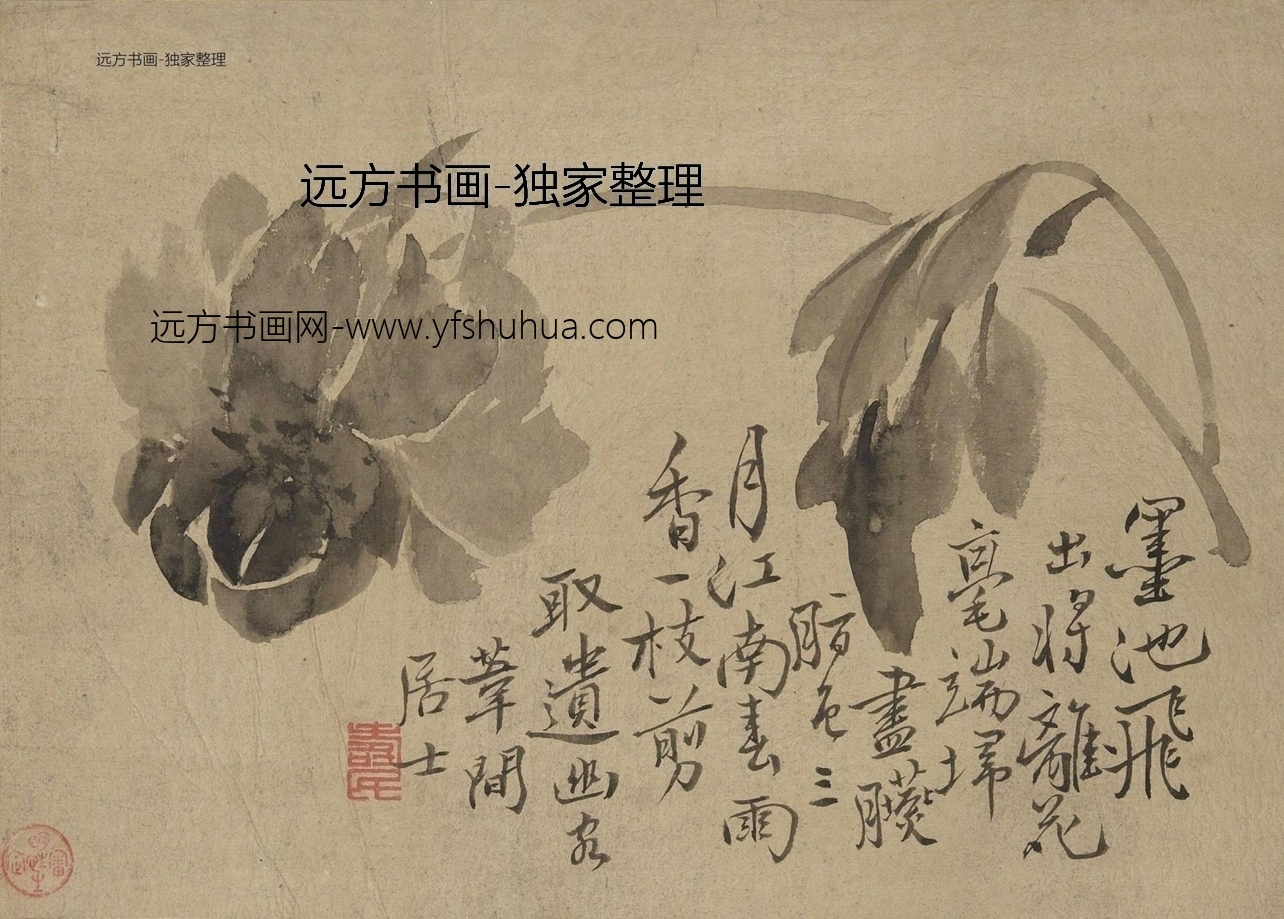 远方书画-独家整理
远方书画-独家整理
远方书画网-www.yfshuhua.com
墨池飛
出將離花
毫端埽
盡臙
脂色三
月江南春雨
香一枝剪
取遺幽客
葦間
居士
壽民